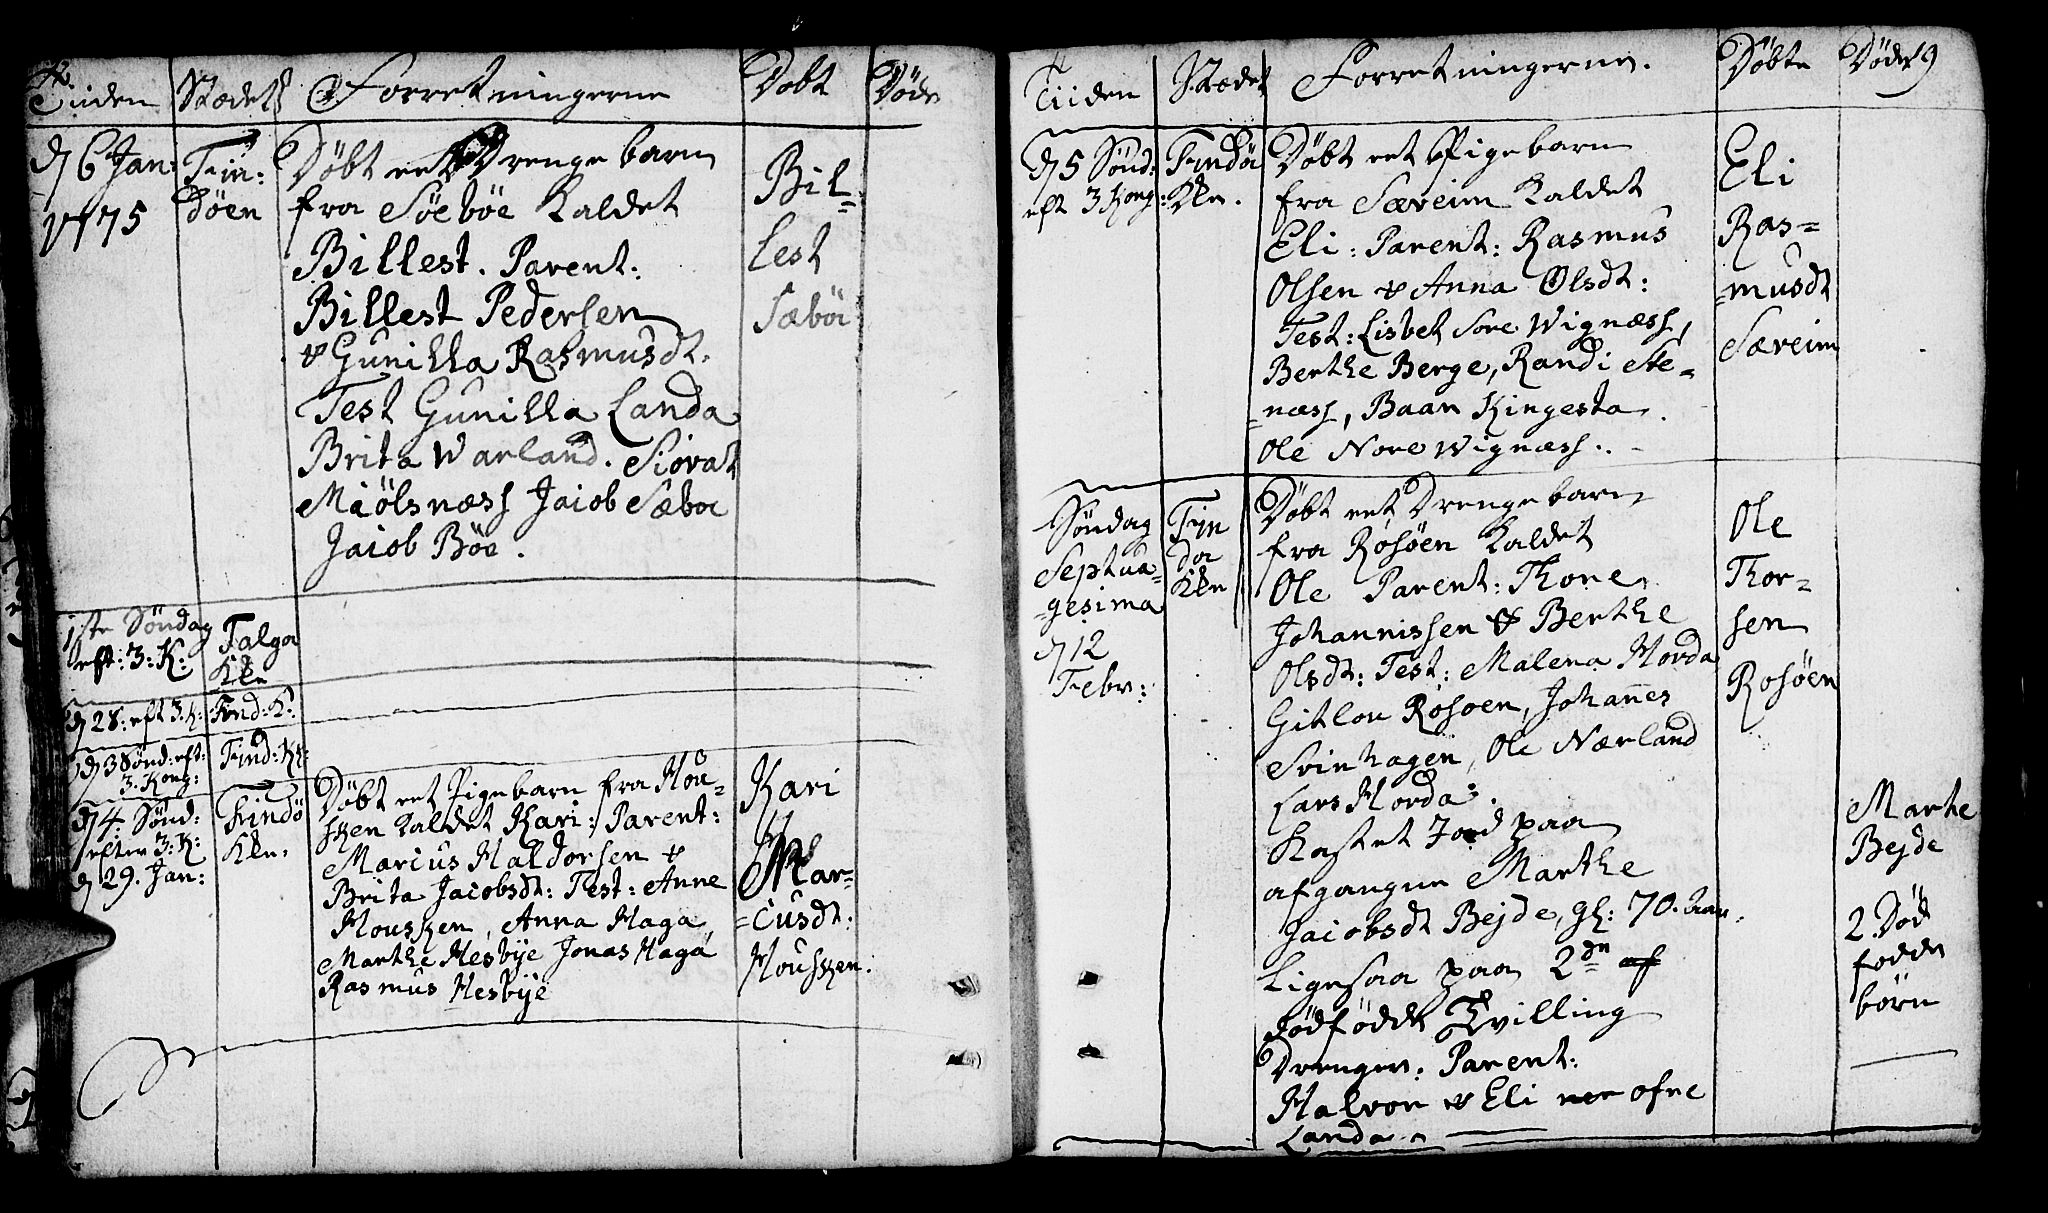 Tiiden Stædet Forretningerne Døbt Døde
d 6 Jan: 1775
Fin: döen
Døbt eet Drenge barn
fra Söeböe Kaldet
Billest. Parent:
Billest Pedersen
& Gunilla Rasmusdt.
Test Gunilla Landa
Brita Warland. Siovat
Miölsness Jacob Sæboe
Jacob Böe.
Bil=
lest
Sæböe
1ste Söndag
eft: 3: K:
Falgö
Kke
d 28: eft 3. K: Find: K:
d 3 Sönd: eft:
3. Kong:
Find: Kk:
d 4 Sönd:
efter 3: K:
d 29. Jan:
Findö
Kke.
Döbt eet Pigebarn fra Hou=
sken Kaldet Kari: Parent:
Marcus Haldorsen &
Brita Jacobsdt: Test: Anne
Housken, Anna Haga,
Marthe Hesbye Jonas Haga
Rasmus Hesbye
Kari
Mar=
=cusdt:
Housken.
Tiiden Stædet Forretningerne. Døbte Døde 9
d 5 Sönd:
eft 3 Kong:
Findöe
Kke.
Döbt eet Pigebarn
fra Særeim Kaldet
Eli: Parent: Rasmus
Olsen & Anna Olsdt:
Test: Lisbet Sore Wignæss,
Berthe Berge, Randi Ste=
=næss, Baar Kingesta.
Ole Nore Wignæss.
Eli
Ras=
=musdt
Særeim
Söndag
Septua=
=gesima
d 12
Febr:
Fin
dö
Kke
Döbt eet Drengebarn
fra Rosöen Kaldet
Ole Parent: Thore
Johannissen & Berthe
Olsdt: Test: Malena Horda
Gitlou Rosöen, Johannes
Svinhagen, Ole Nærland
Lars Horda.
Kastet Jord paa
afgangne Marthe
Jacobsdt Bejde, gl: 70. Aar.
Ligesaa paa 2de
dødfödde Tvilling
Drenger. Parent:
Halvor & Eli ofre
Landa.
Ole
Thor=
sen
Rosöen
Marthe
Bejde
2 Död
fodde
börn